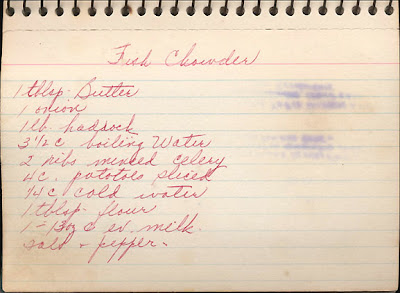 Fish Chowder
1 tblsp. Butter
1 onion
1 lb. haddock
3 1/2 c boiling Water
2 ribs minced celery
4 c. potatoes sliced
1/4 c cold water
1 tblsp. flour
1 - 13 oz c ev. milk.
salt + pepper.